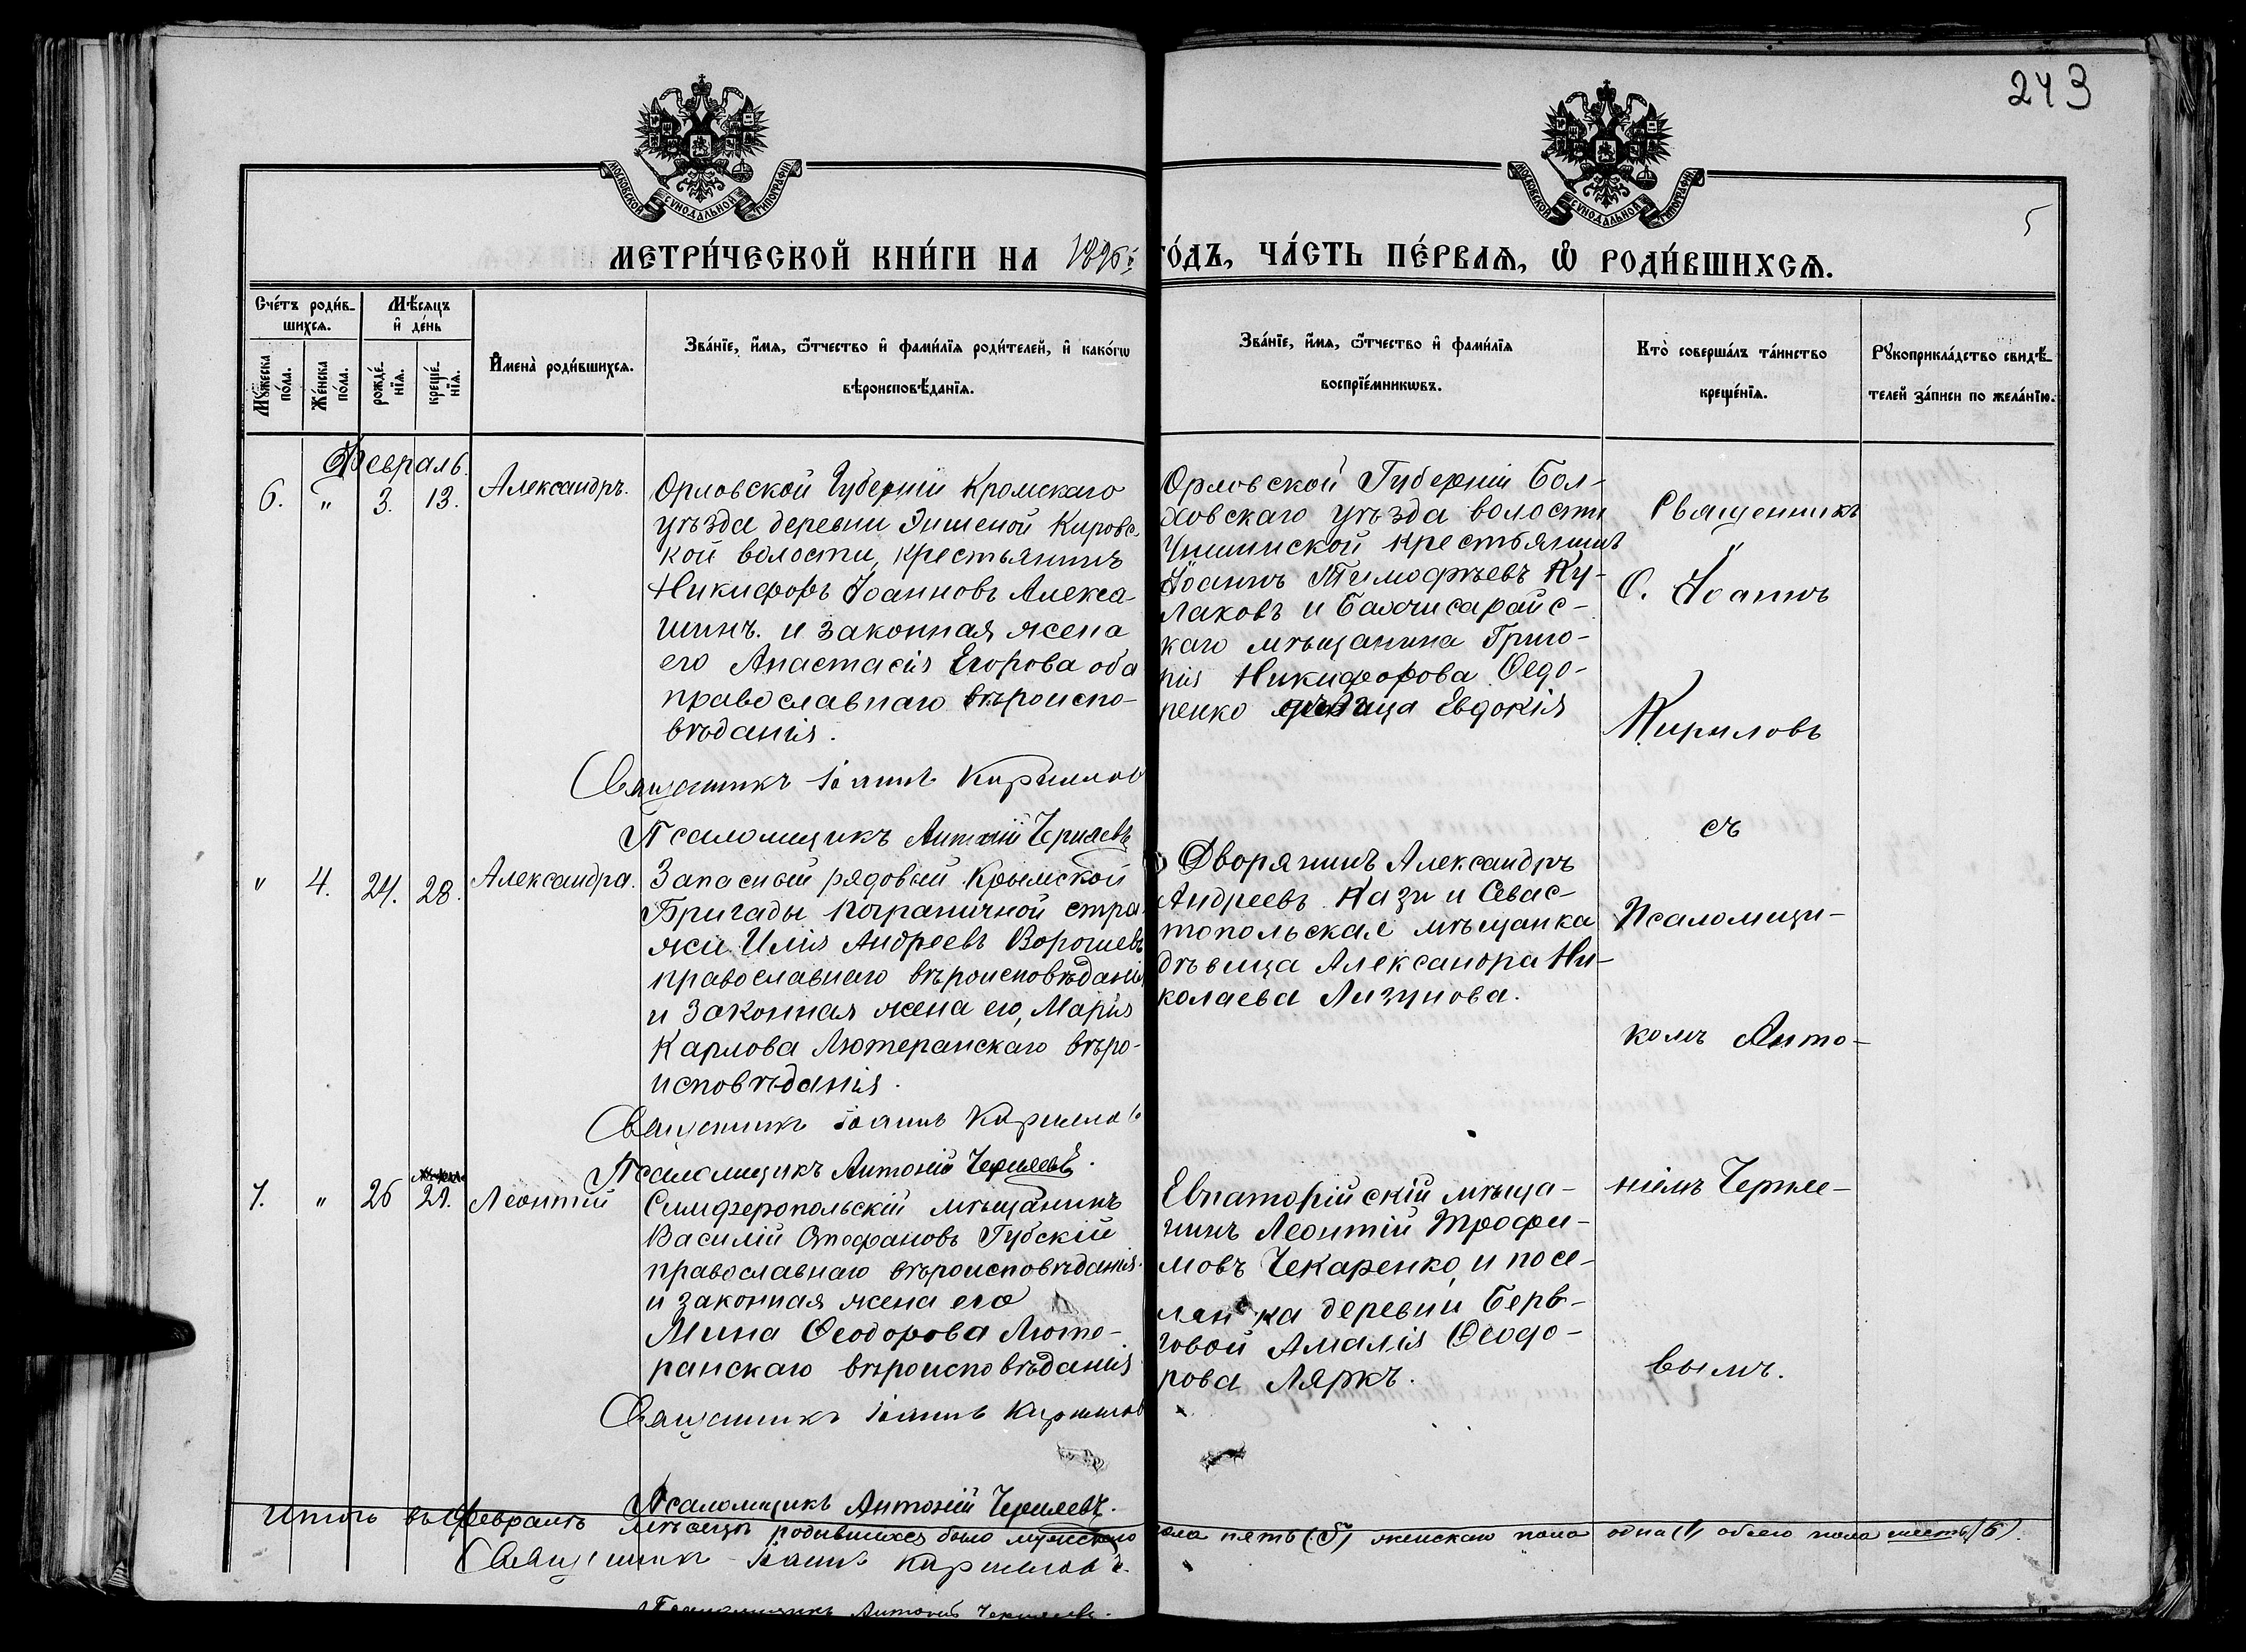 243
5
МОСКОВСКОЙ СѴНОДАЛЬНОЙ ТИПОГРАФІИ
МОСКОВСКОЙ СѴНОДАЛЬНОЙ ТИПОГРАФІИ
МЕТРИ́ЧЕСКОЙ КНИ́ГИ НА 1896й ГО́ДЪ, ЧА́СТЬ ПЕ́РВАѦ, Ѡ РОДИ́ВШИХСѦ.
Сче́тъ роди́в-
шихсѧ.
Мꙋ́жеска
по́ла.
Же́нска
по́ла.
Мѣ́сѧцъ
и҆ де́нь
рожде́-
нїѧ.
креще́-
нїѧ.
И҆мена̀ роди́вшихсѧ.
Зва́нїе, и҆́мѧ, ѻ҆́тчество и҆ фами́лїѧ роди́телей, и҆ како́гѡ
вѣроисповѣ́данїѧ.
Зва́нїе, и҆́мѧ, ѻ҆́тчество и҆ фами́лїѧ
воспрїе́мникѡвъ.
Кто̀ соверша́лъ та́инство
креще́нїѧ.
Рꙋкоприкла́дство свидѣ́-
телей за́писи по жела́нїю.
Февраль.
6. " 3. 13. Александръ.
Орловской Губерніи Кромскаго
уѣзда деревни Кировс-
кой волости, крестьянинъ
Никифоръ Іоанновъ Алекса-
шинъ. и законная жена
его Анастасія Егорова оба
православнаго вѣроиспо-
вѣданія.
Священникъ Іоаннъ Кирилловъ
Псаломщикъ Антоній Черняевъ
Орловской Губерніи Бол-
ховскаго уѣзда волости
крестьянинъ
Іоаннъ Тимофѣевъ Ку-
лаковъ и Бахчисарайс-
каго мѣщанина Григо-
рія Никифорова Ѳедо-
ренко дѣвица Евдокія
Священникъ
О. Іоаннъ
Кириловъ
съ
Псаломщи-
комъ Анто-
ніемъ Черняе-
вымъ.
" 4. 24. 28. Александра.
Запасный рядовый Крымской
Бригады пограничной стра-
жи Илія Андреевъ
православнаго вѣроисповѣданія
и законная жена его, Марія
Карлова Лютеранскаго вѣро-
исповѣданія.
Священникъ Іоаннъ Кирилловъ
Псаломщикъ Антоній Черняевъ.
Дворянинъ Александръ
Андреевъ Кази и Севас-
топольская мѣщанка
дѣвица Александра Ни-
колаева Лизунова.
7. " 26 29. Леонтій
Симферопольскій мѣщанинъ
Василій Стефановъ Губскій
православнаго вѣроисповѣданія.
и законная жена его
Мина Ѳеодорова Люте-
ранскаго вѣроисповѣданія
Священникъ Іоаннъ Кирилловъ
Псаломщикъ Антоній Черняевъ.
Евпаторійскій мѣща-
нинъ Леонтій Трофи-
мовъ Чекаренко, и посе-
лянка деревни
Амалія Ѳеодо-
рова Ляркъ.
Итого въ Февралѣ мѣсяцѣ родившихся было мужского пола пять (5) женскаго пола одна (1) обоего пола шесть (6).
Священникъ Іоаннъ Кирилловъ.
Псаломщикъ Антоній Черняевъ.